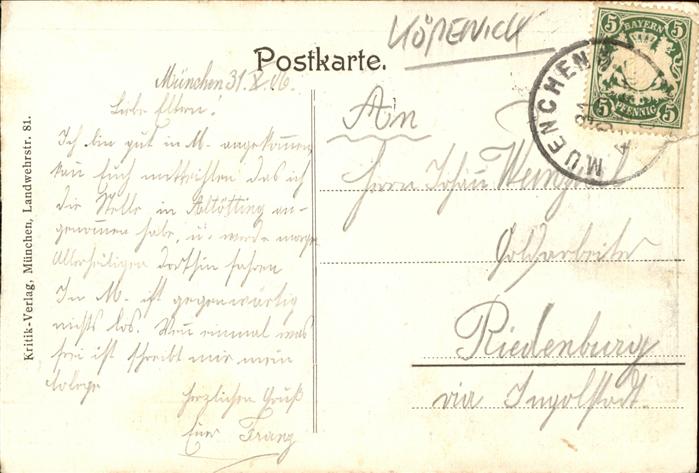 KÖPENICK
Postkarte.
BAYERN
5 5
5 5
PFENNIG
MUENCHEN
31
München 31. X. 06.
Liebe Eltern!
Ich bin gut in M. angekommen
kan Euch mitteihlen das ich
die Stelle in Altötting an-
genomen habe, u. werde morgen
Allerheiligen dorthin fahren
In M. ist gegenwärtig
nichts los. Wen einmal was
frei ist schreibt mir mein
Colege
Herzlichen Gruß
Euer Franz
An
Herrn Johann
Goldarbeiter
Riedenburg
via Ingolstadt.
Kritik-Verlag, München, Landwehrstr. 81.